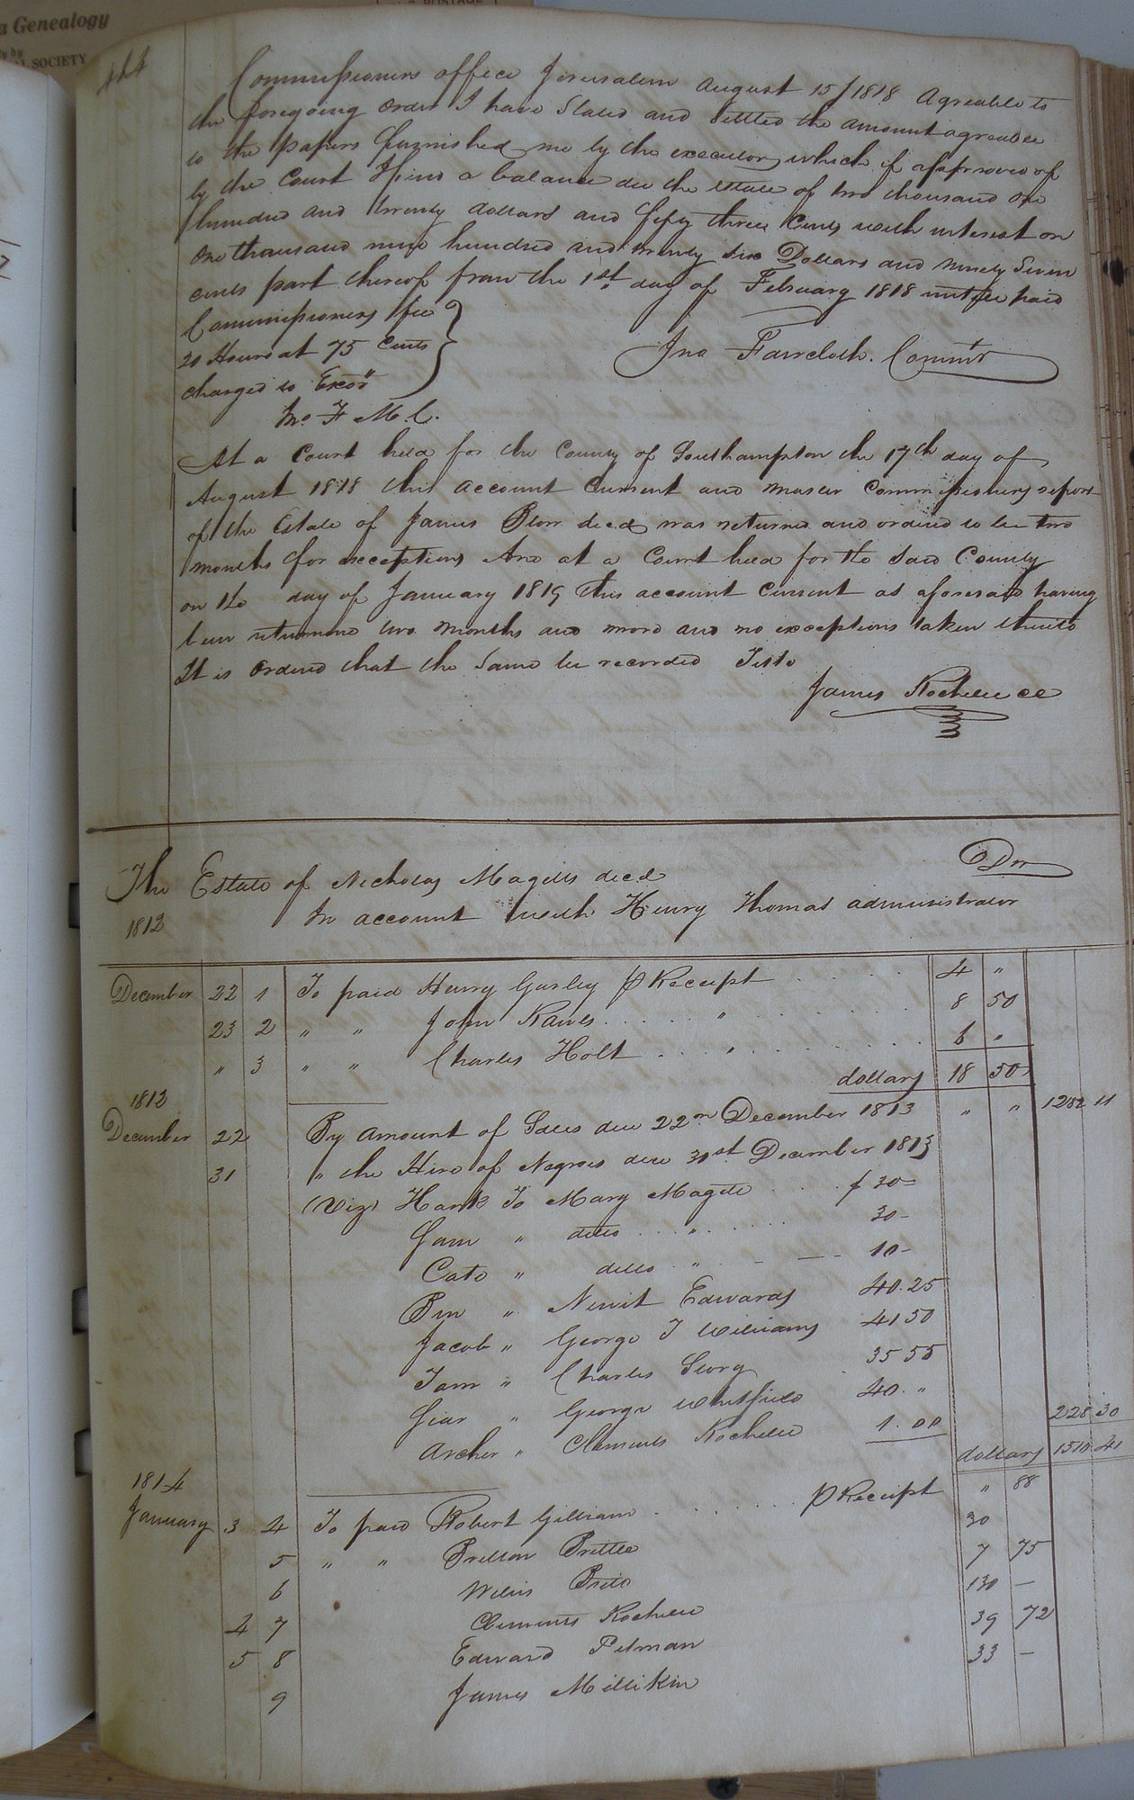 a Genealogy
SOCIETY
Commissioners office Jerusalem August 15/1818 Agreable to
the foregoing order I have Stated and Settled the amount agreable
to the papers furnished me by the executor which if approved of
by the Court I find a balance due the estate of two thousand one
hundred and twenty dollars and fifty three Cents with interest on
one thousand nine hundred and twenty six Dollars and ninety Seven
cents part thereof from the 1st day of February 1818 until paid
Commissioners fee
20 Hours at 75 Cents
charged to Exor
Jno Faircloth. Commr
Jno F M.C.
At a Court held for the County of Southampton the 17th day of
August 1818 this account Current and master Commissioners report
of the Estate of James decd was returned and ordered to lie two
months for exceptions And at a Court held for the said County
on the day of January 1819 this account Current as aforesaid having
been returned two months and more and no exceptions taken thereto
It is ordered that the Same be recorded Teste
James Rochelle cc
The Estate of Nicholas Magills decd Dr
1812 In account with Henry Thomas administrator
December 22 1 To paid Henry Gurley P Receipt 4 "
23 2 " " John " 8 50
" 3 " " Charles Holt " 6 "
dollars 18 50
1813
December 22 By Amount of Sales due 22nd December 1813 " " 1282 11
31 " the Hire of Negroes due 31st December 1813
(Viz) Hank To Mary Magill $ 30
Sam " ditto " 30
Cato " ditto " 10
Ben " Newit Edwards 40.25
Jacob " George T Williams 41 50
Tom " Charles 35 55
" George Whitfield 40. "
Archer " Clements Rochelle 1.00 228 30
dollars 1510 41
1814
January 3 4 To paid Robert Gilliam P Receipt " 88
5 " " Britton Brittle 30
6 Willis 7 75
4 7 Clements Rochelle 130 –
5 8 Edward Pitman 39 72
9 James Millikin 33 –